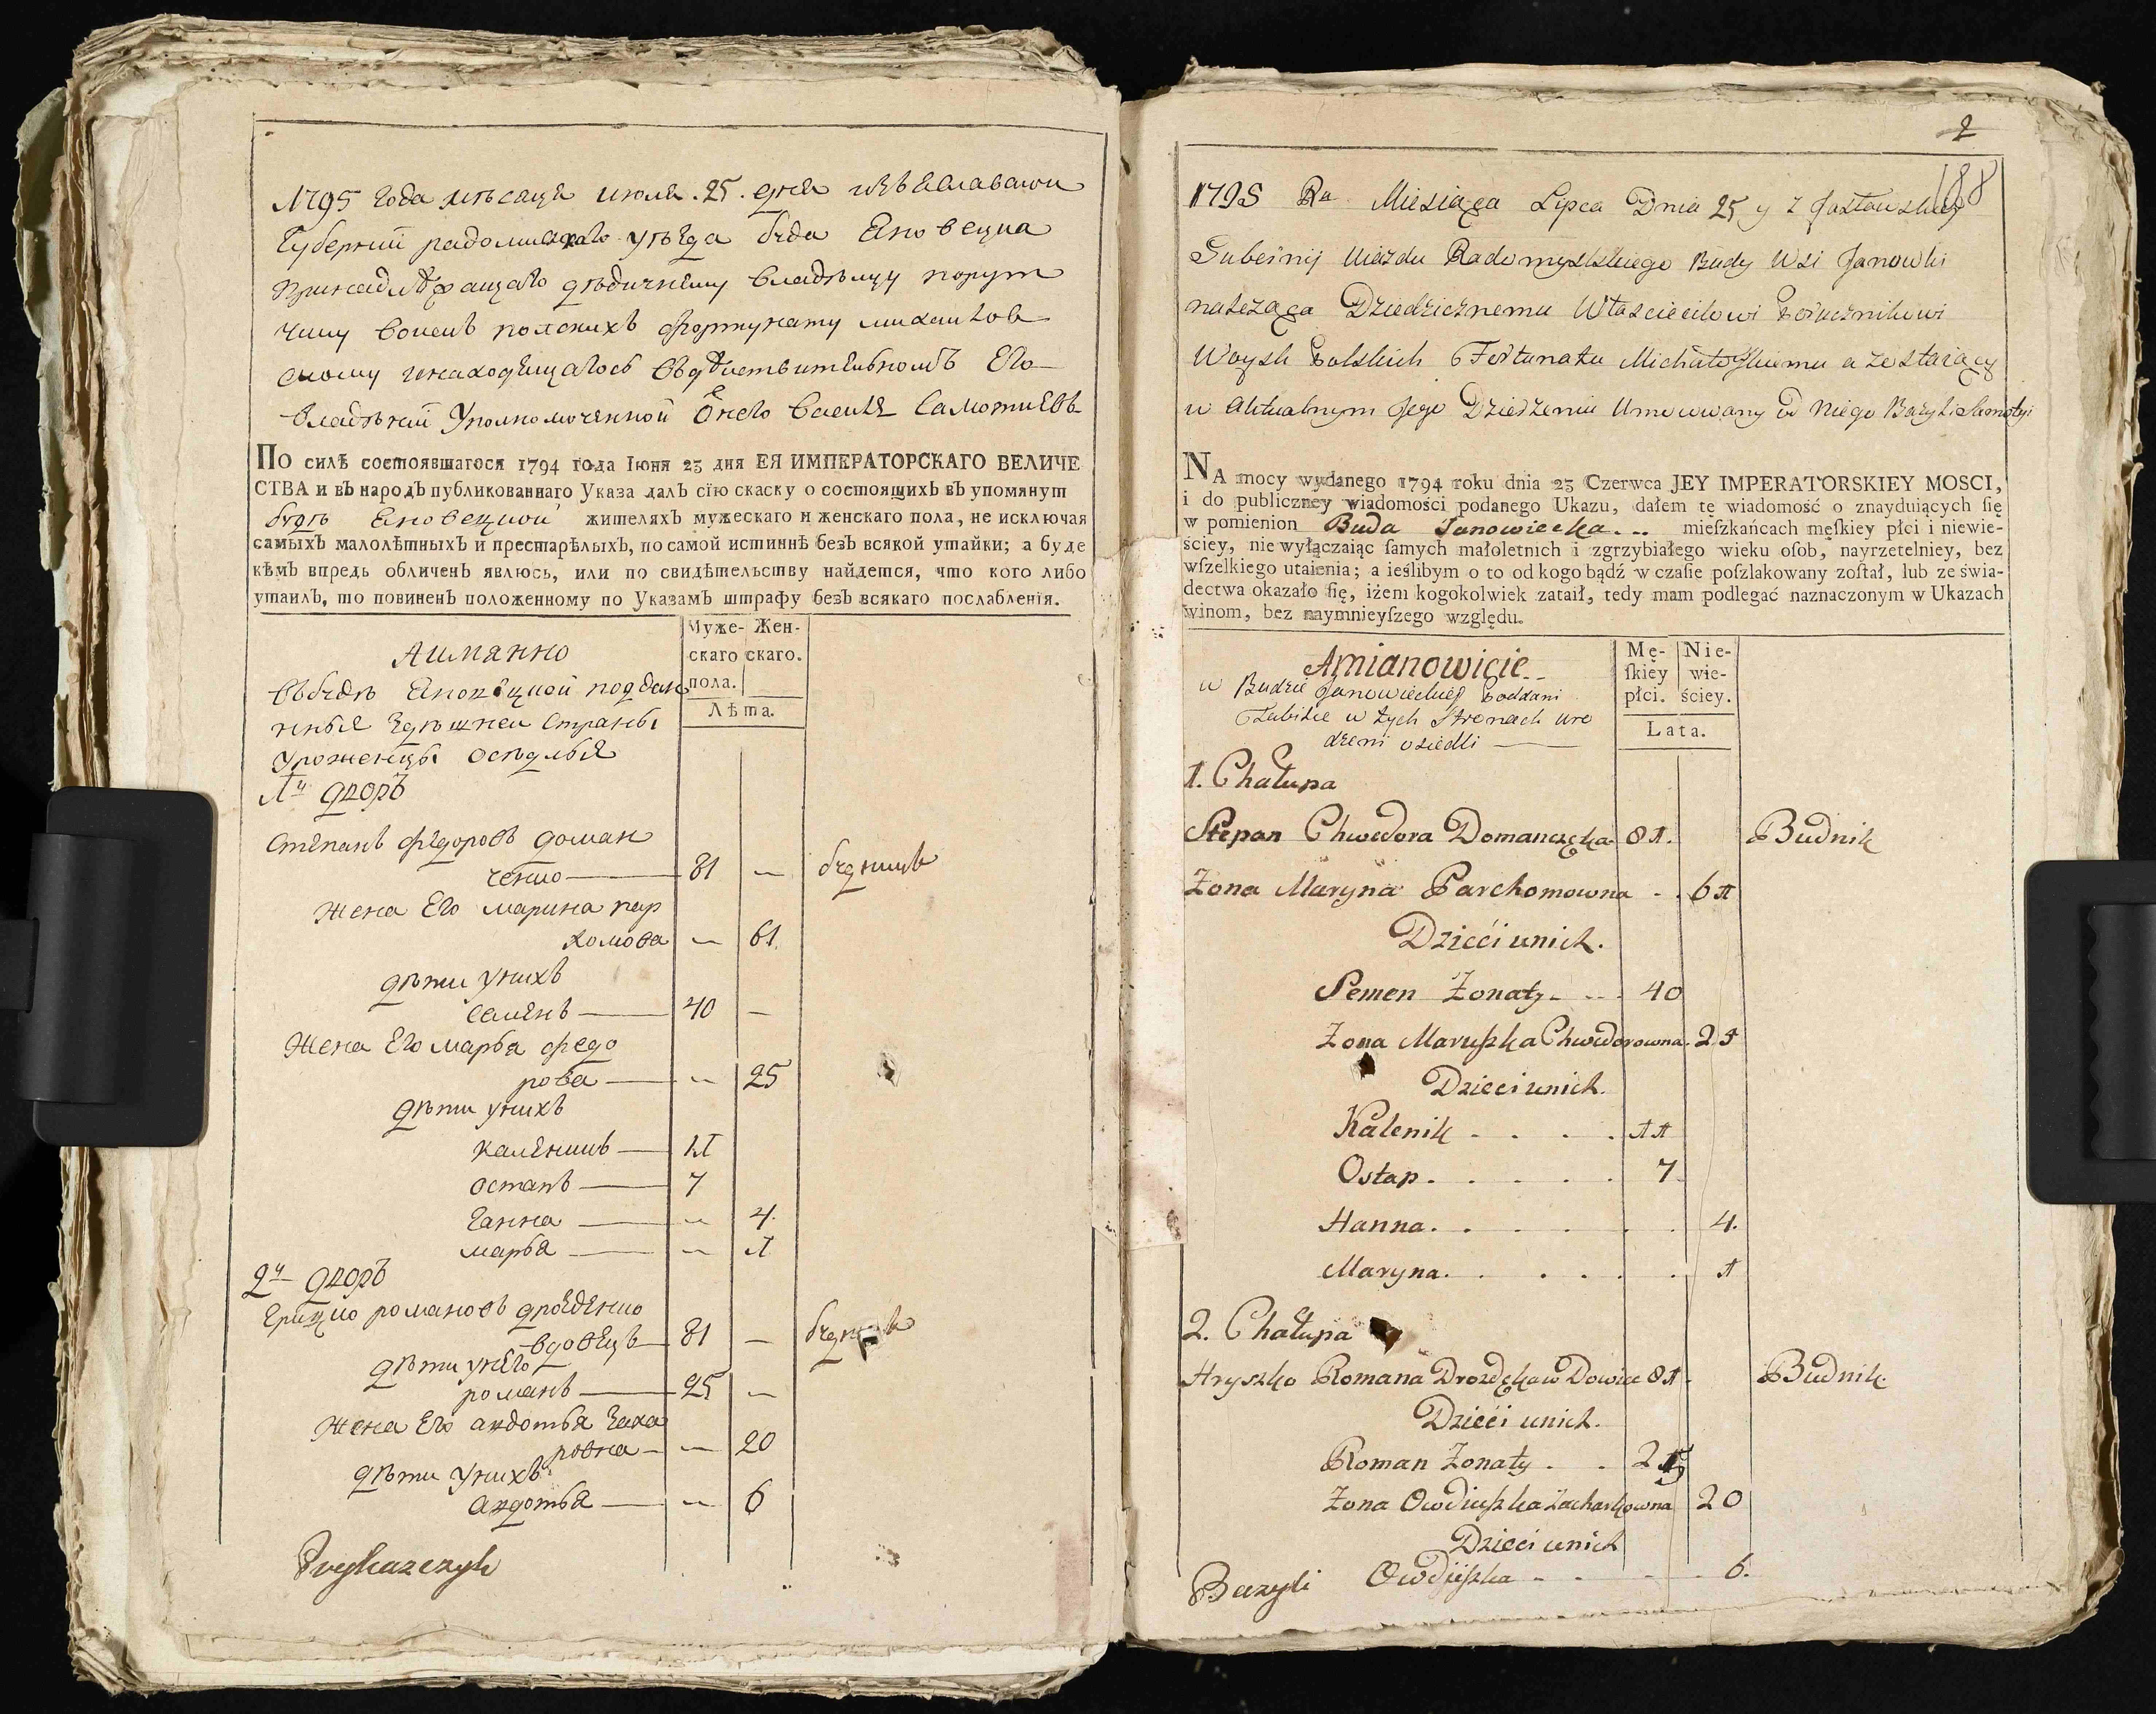 1795 года мѣсаца июля .25. дня изъ Еславскои
Губернии радомисхаго уѣзда буда Яновецка
принадлѣжащаго дѣдичнему владѣлцу порут
чику воискъ полскихъ фортунату михалков
скому инаходящагось въдѣиствителномъ Его
владѣнии Уполномоченной Отнего василя
По силѣ состоявшагося 1794 года Іюня 23 дня ЕЯ ИМПЕРАТОРСКАГО ВЕЛИЧЕ
СТВА и въ народъ публикованнаго Указа далъ сїю скаску о состоящихъ въ упомянут
будѣ Яновецкой жителяхъ мужескаго и женскаго пола, не исключая
самыхъ малолѣтныхъ и престарѣлыхъ, по самой истиннѣ безъ всякой утайки; а буде
кѣмъ впредь обличенъ явлюсь, или по свидѣтельству найдется, что кого либо
утаилъ, то повиненъ положенному по Указамъ штрафу безъ всякаго послабленія.
Муже- Жен-
скаго скаго.
пола.
Лѣта.
Аимянно
Въбудѣ Яновецкой поддан
ныя здѣшнеи Страны
Уроженцы осѣдлыя
1й дворъ
Степанъ федоровъ доман
ченко 81 — будникъ
жена Его марина пар
хомова — 61.
дѣти унихъ
Семенъ 40 —
жена Его марья федо
рова — 25
дѣти унихъ
каленикъ 11
остапъ 7
ганна — 4.
марья — 1
2й дворъ
Грицко романовъ дрозденко
вдовецъ 81 — будникъ
дѣти унего
романъ 25 —
жена Его авдотья заха
ровна — 20
дѣти унихъ
авдотья — 6
2
188
1795 Ru Miesiąca Lipca Dnia 25 y z Jzasławskiey
Gubernij Uiazdu Radomyslskiego Budy Wsi Janowki
należąca Dziedzicznemu Włascicielowi Porucznikowi
Woysk Polskich Fortunatu Michałoskiemu a zostaiący
w Aktualnym Jego Dziedzeniu Umowwany od Niego Bazyli Samotyi
NA mocy wydanego 1794 roku dnia 23 Czerwca JEY IMPERATORSKIEY MOSCI,
i do publiczney wiadomości podanego Ukazu, dałem tę wiadomość o znayduiących ſię
w pomienion Buda Janowiecka. .. mieſzkańcach męſkiey płci i niewie-
ściey, nie wyłączaiąc ſamych małoletnich i zgrzybiałego wieku oſob, nayrzetelniey, bez
wſzelkiego utaienia; a ieślibym o to od kogo bądź w czaſie poſzlakowany zoſtał, lub ze świa-
dectwa okazało ſię, iżem kogokolwiek zataił, tedy mam podlegać naznaczonym w Ukazach
winom, bez naymnieyſzego względu.
Mę- Nie-
ſkiey wie-
płci. ściey.
Lata.
Amianowicie
w Budzie Janowieckiey Poddani
Tabisze w tych Stronach uro
dzeni osiedli
1. Chałupa
Stepan Chwedora Domanczęka 81. Budnik
Zona Maryna Parchomowna - . 61
Dzieći unich.
Semen Zonaty - ... 40
Zona Maruszka Chwedorowna. 25
Dzieci unich.
Kalenik . . . . 11
Ostap . . . . . 7
Hanna . . . . . 4.
Maryna . . . . . 1
2. Chałupa
Hryszko Romana Drozdęka w Dowiec 81. Budnik
Dzieći unich.
Roman Zonaty . . 25
Zona Owdiuszka Zacharkowna 20
Dzieci unich
Owdiuszka - - - - 6.
Bazyli